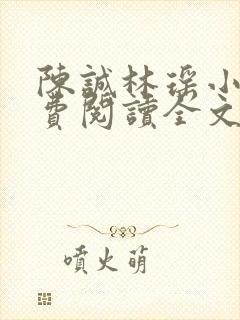 陳誠林瑤小
費閱讀全文
噴火萌